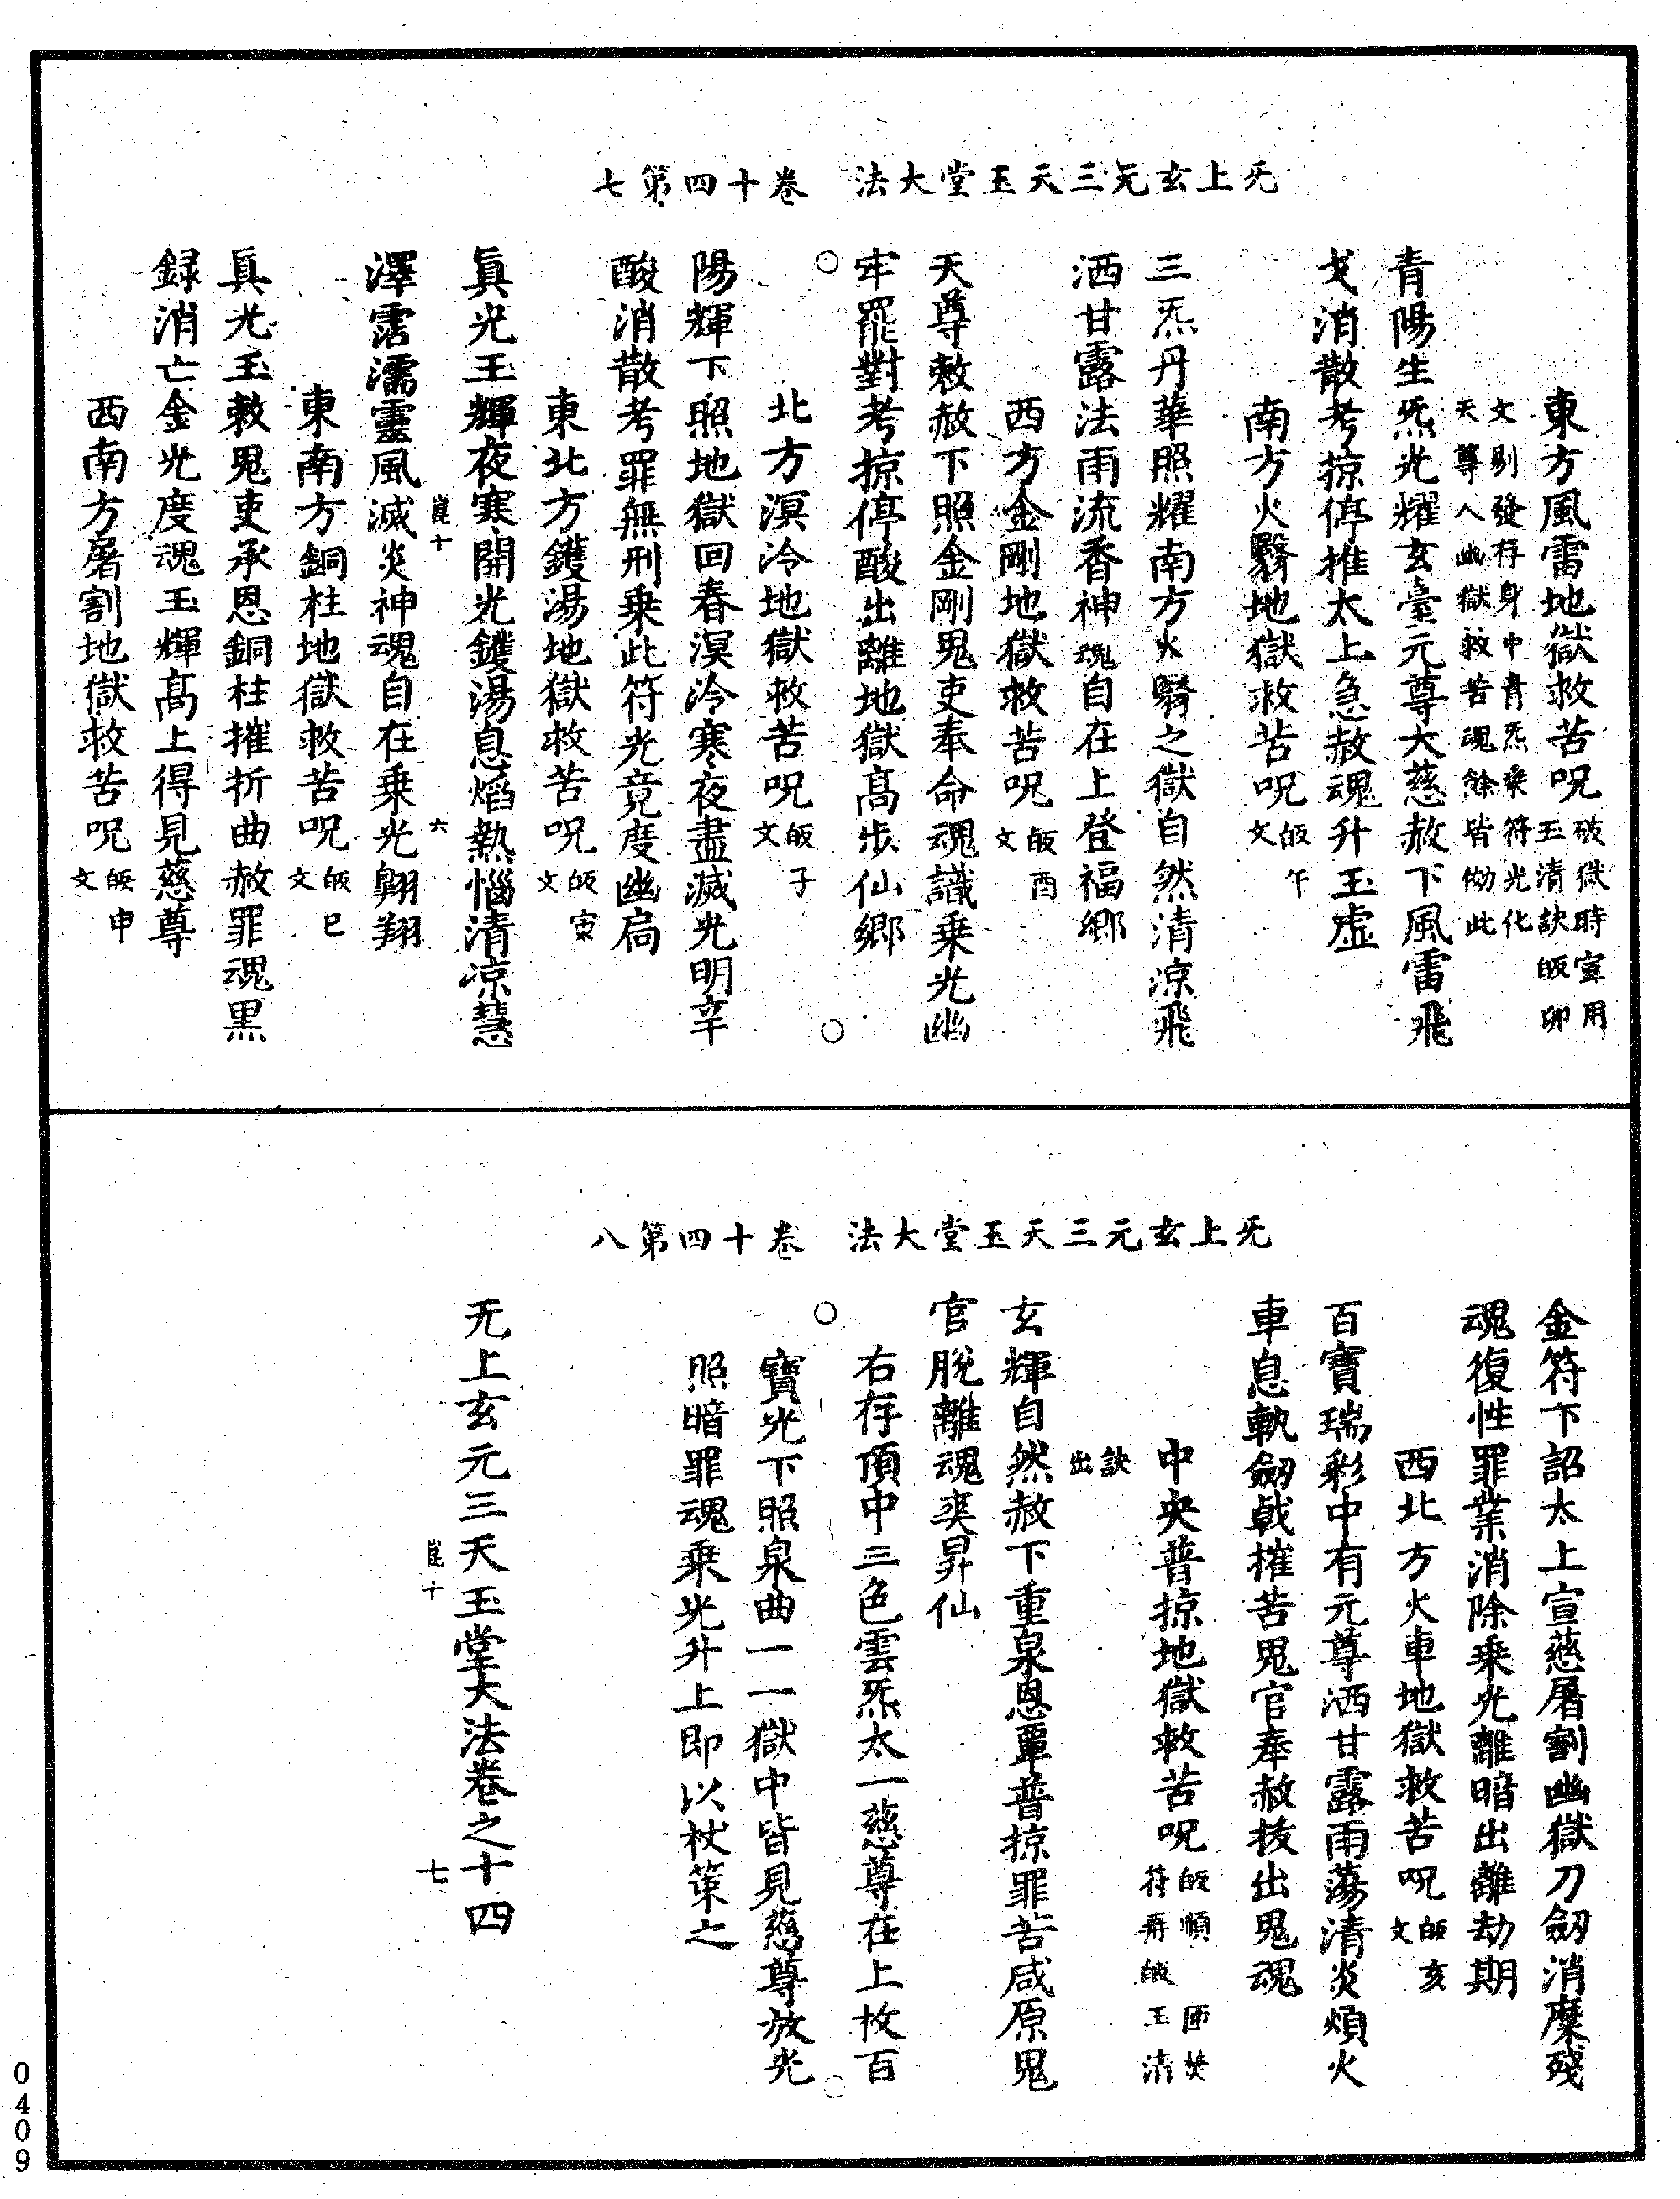 无上玄元三天玉堂大法　卷十四第七
東方風雷地獄救苦呪破獄時宣用玉清訣皈卯
文剔發存身中青炁乘符光化天尊入幽獄救苦魂餘皆倣此
青陽生炁光耀玄臺元尊大慈赦下風雷飛
戈消散考掠停推太上急赦魂升玉虛
南方火翳地獄救苦呪皈午文
三炁丹華照耀南方火翳之獄自然清凉飛
洒甘露法雨流香神魂自在上登福鄉
西方金剛地獄救苦呪皈酉文
天尊敕赦下照金剛鬼吏奉命魂識乗光幽
牢罷對考掠停酸出離地獄高步仙鄉
北方溟泠地獄救苦呪皈子文
陽輝下照地獄回春溟泠寒夜盡滅光明辛
酸消散考罪無刑乗此符光竟度幽扃
東北方鑊湯地獄救苦呪皈寅文
眞光玉輝夜寒開光鑊湯息焰熱惱清凉慧
崑十　六
澤霑濡靈風滅炎神魂自在乗光翺翔
東南方銅柱地獄救苦呪皈巳文
眞光玉敕鬼吏承恩銅柱摧折曲赦罪魂黒
録消亡金光度魂玉輝髙上得見慈尊
西南方屠割地獄救苦呪皈申文
无上玄元三天玉堂大法　卷十四第八
金符下詔太上宣慈屠割幽獄刀劔消糜殘
魂復性罪業消除乗光離暗出離劫期
西北方火車地獄救苦呪皈亥文
百寶瑞彩中有元尊洒甘露雨蕩清炎煩火
車息軌劔戟摧苦鬼官奉赦拔出鬼魂
中央普掠地獄救苦呪皈順匝焚符再皈玉清
訣出
玄輝自然赦下重泉恩覃普掠罪苦咸原鬼
官脫離魂爽昇仙
右存頂中三色雲炁太一慈尊在上枚百
寶光下照泉曲一一獄中皆見慈尊放光
照暗罪魂乗光升上即以杖策之
无上玄元三天玉堂大法卷之十四
崑十　七
0409